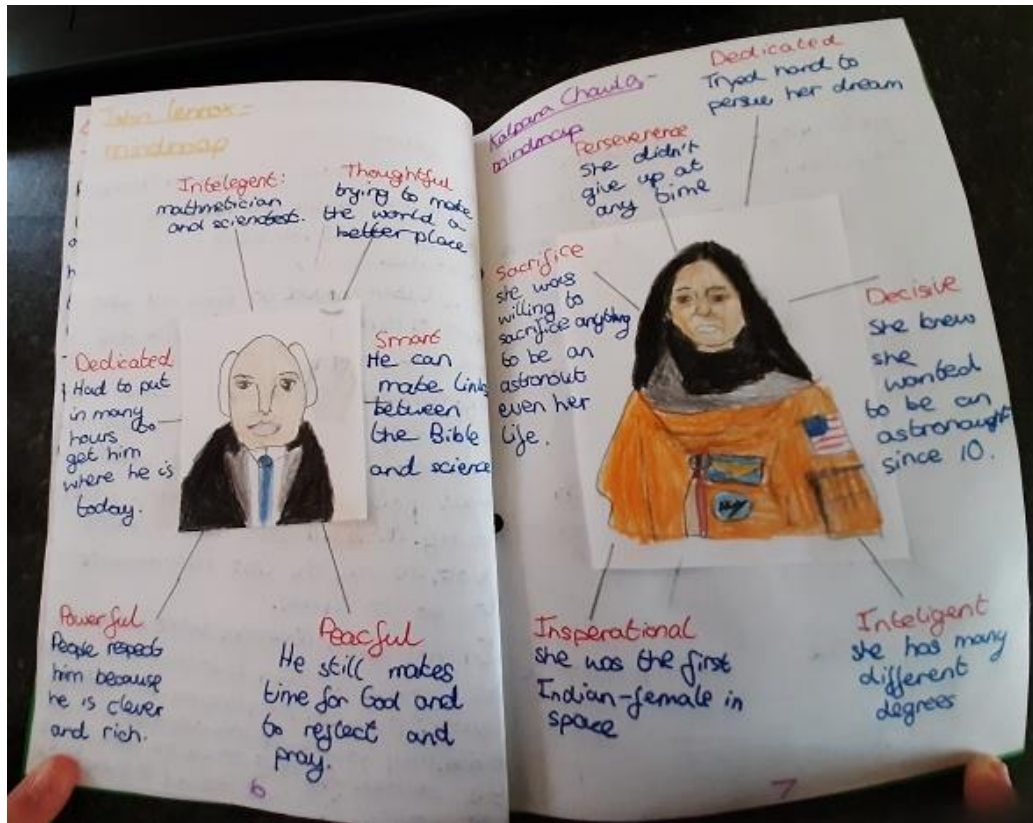 John lennox -
mindmap
Intelegent:
mathmetician
and scientest.
Thoughtful
trying to make
the world a
better place
Dedicated
Had to put
in many
hours to
get him
where he is
today.
Smart
He can
make links
between
the Bible
and science
Powerful
People respects
him because
he is clever
and rich.
Peacful
He still makes
time for God and
to reflect and
pray.
6
Kalpana Chawla -
mindmap
Dedicated
Tryed hard to
persue her dream
Perseverence
She didn't
give up at
any time
Sacrifice
she was
willing to
sacrifice anything
to be an
astronout
even her
life.
Decisive
She knew
she
wanted
to be an
astronaught
since 10.
Insperational
she was the first
Indian-female in
space
Inteligent
she has many
different
degrees
7